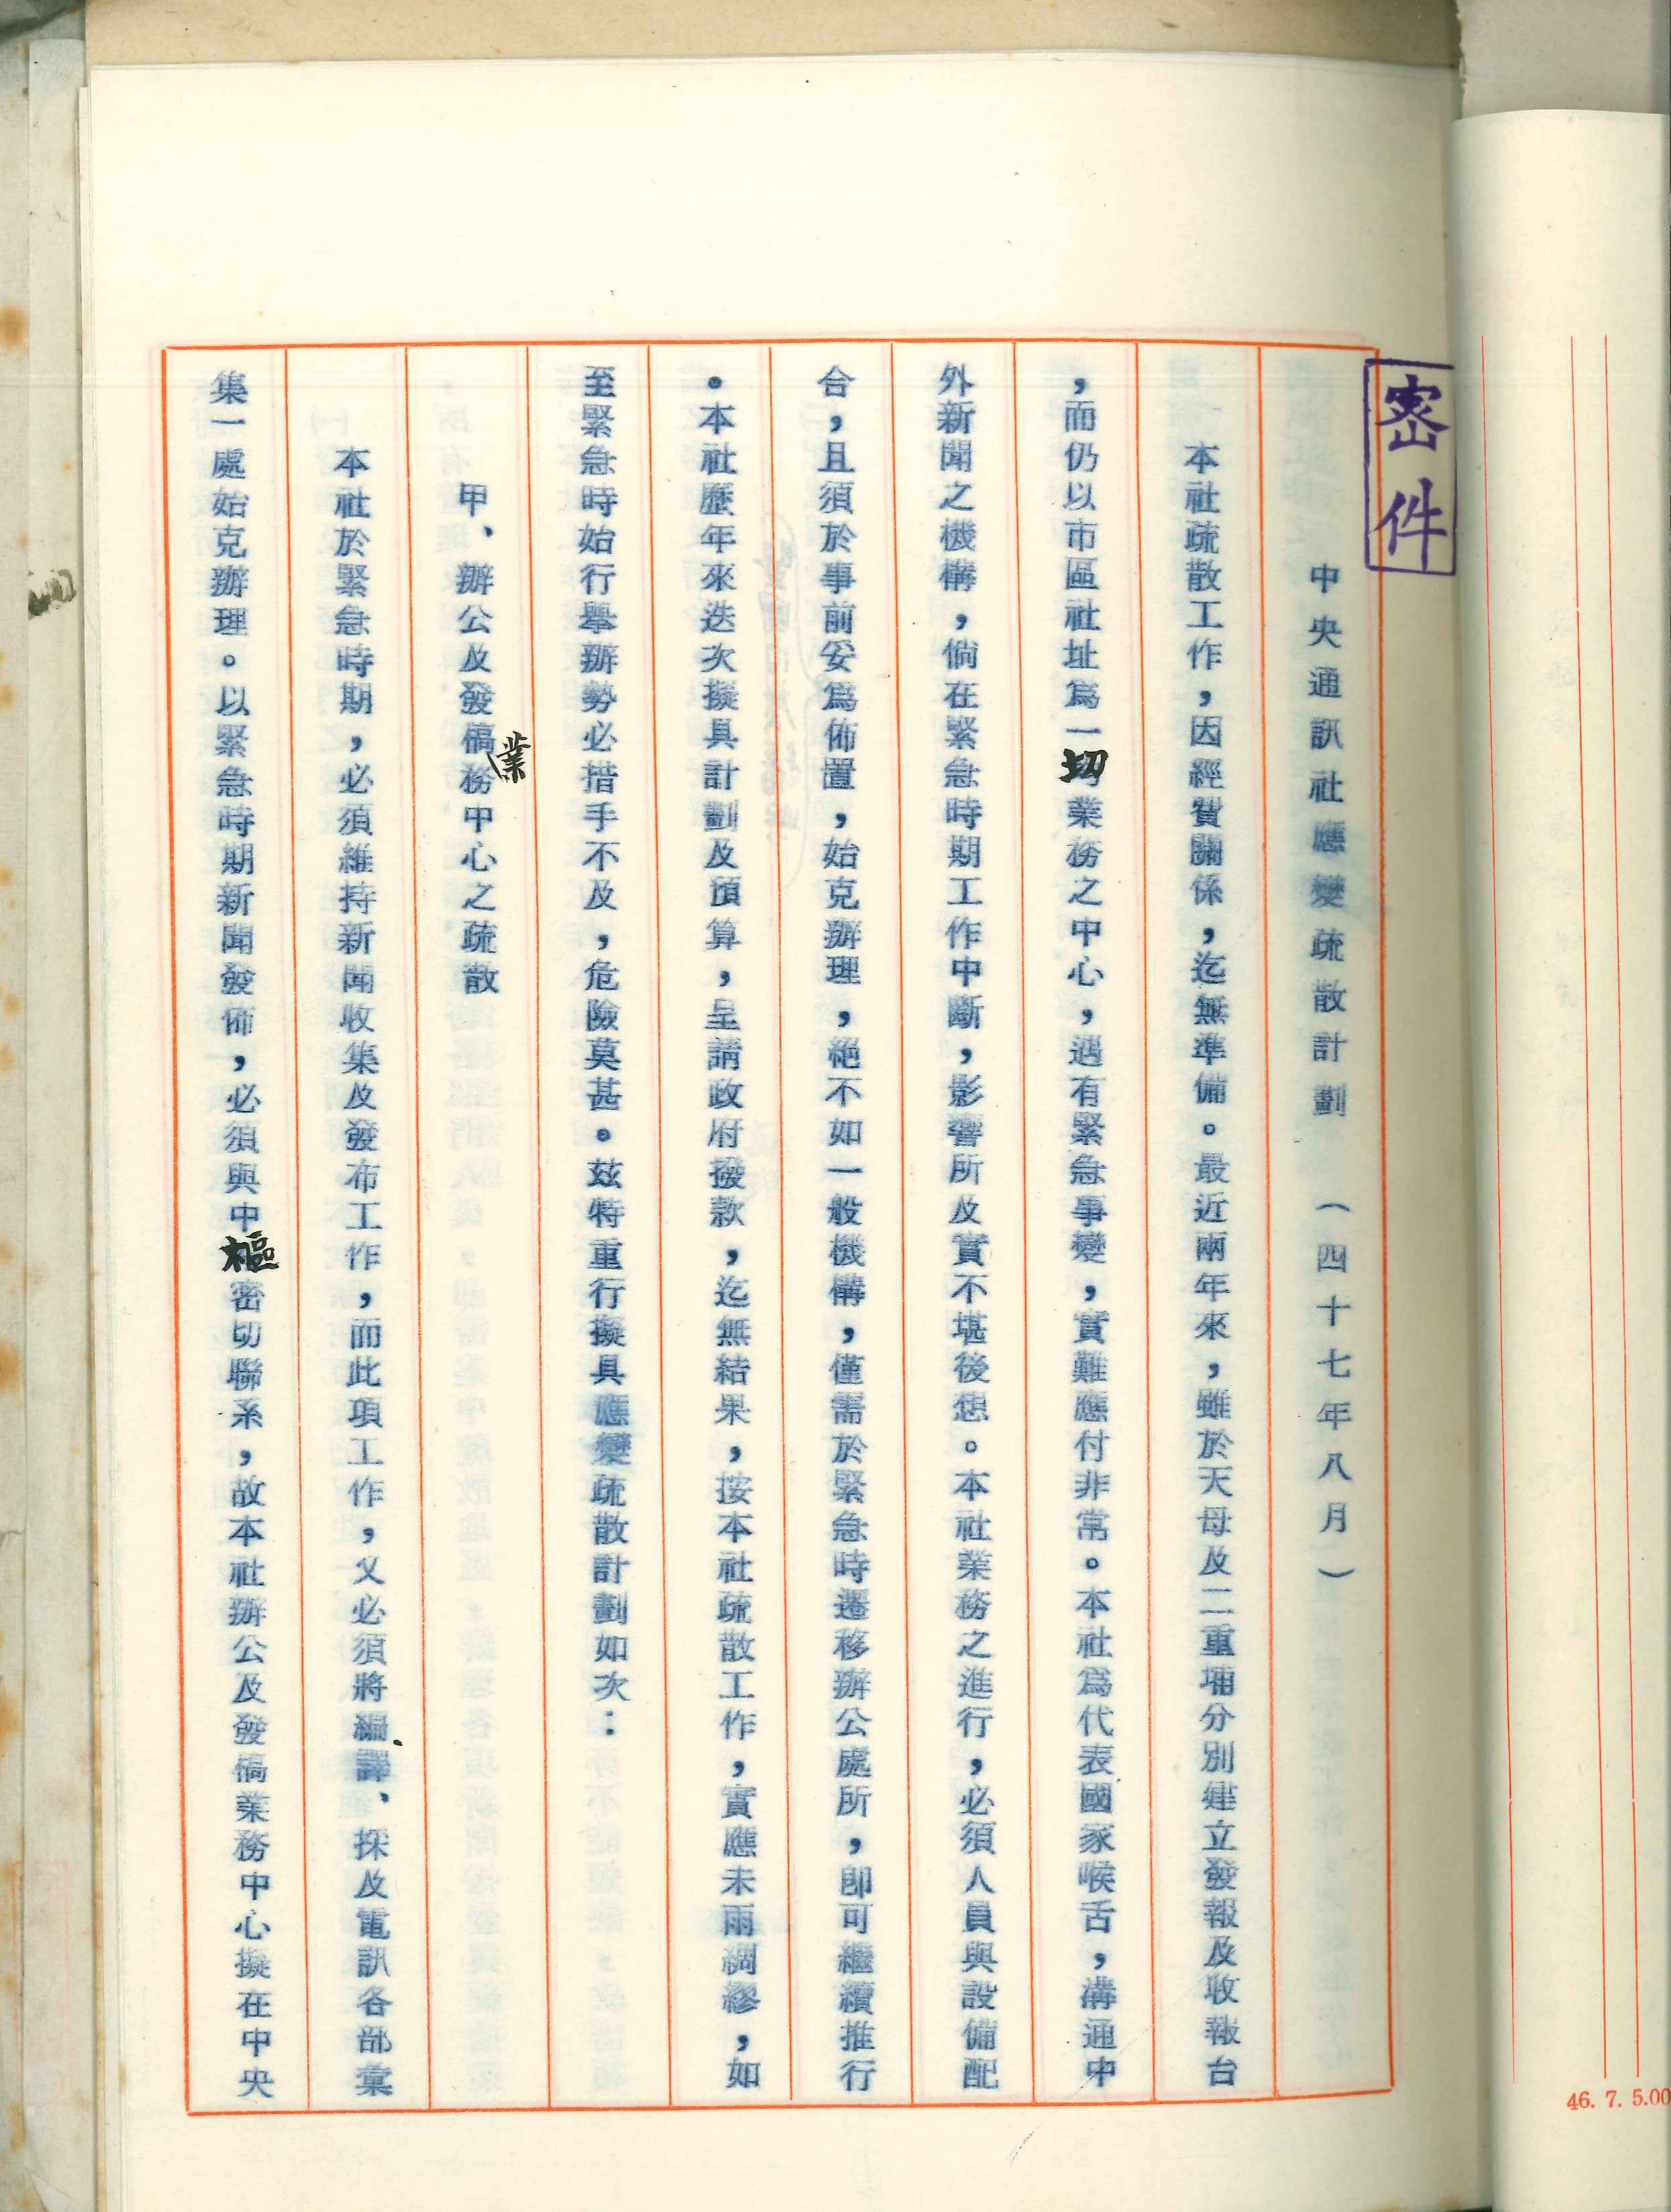 密件
中央通訊社應變疏散計劃　（四十七年八月）
本社疏散工作，因經費關係，迄無準備。最近兩年來，雖於天母及二重埔分別建立發報及收報台
，而仍以市區社址爲一切業務之中心，遇有緊急事變，實難應付非常。本社爲代表國家喉舌，溝通中
外新聞之機構，倘在緊急時期工作中斷，影響所及實不堪後想。本社業務之進行，必須人員與設備配
合，且須於事前妥爲佈置，始克辦理，絕不如一般機構，僅需於緊急時遷移辦公處所，卽可繼續推行
。本社歷年來迭次擬具計劃及預算，呈請政府撥款，迄無結果，按本社疏散工作，實應未雨綢繆，如
至緊急時始行舉辦勢必措手不及，危險莫甚。玆特重行擬具應變疏散計劃如次：
甲、辦公及發稿業務中心之疏散
本社於緊急時期，必須維持新聞收集及發布工作，而此項工作，又必須將編譯、採及電訊各部彙
集一處始克辦理。以緊急時期新聞發佈，必須與中樞密切聯系，故本社辦公及發稿業務中心擬在中央
46. 7. 5.00